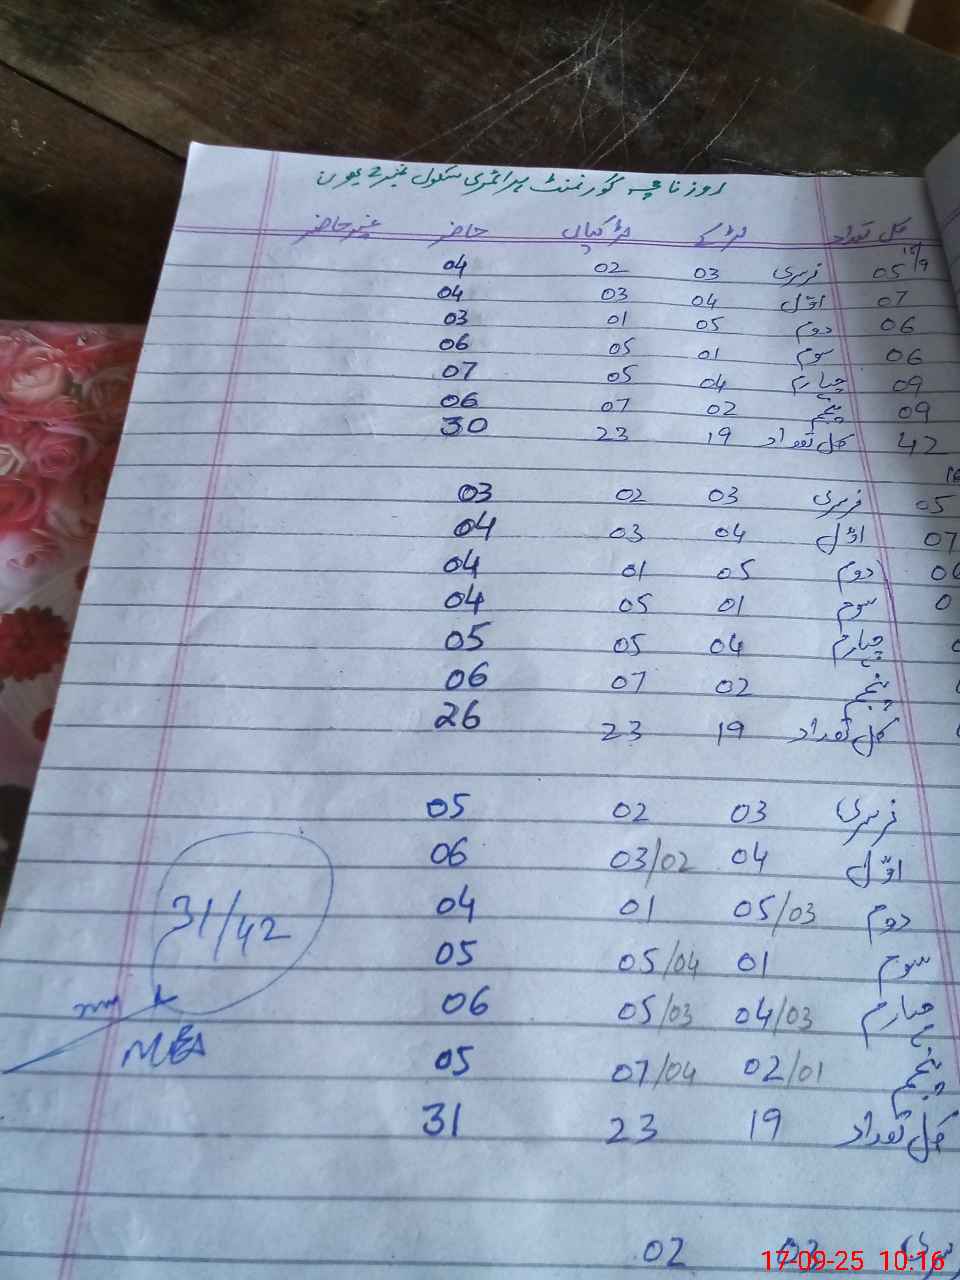 روزنامچہ گورنمنٹ پرائمری سکول نمبر 2
کل تعداد لڑکے لڑکیاں حاضر غیر حاضر
15/9
05 نرسری 03 02 04
07 اوّل 04 03 04
06 دوم 05 01 03
06 سوم 01 05 06
09 چہارم 04 05 07
09 پنجم 02 07 06
42 کل تعداد 19 23 30
16
05 نرسری 03 02 03
07 اوّل 04 03 04
دوم 05 01 04
سوم 01 05 04
چہارم 04 05 05
پنجم 02 07 06
کل تعداد 19 23 26
نرسری 03 02 05
اوّل 04 03/02 06
دوم 05/03 01 04
سوم 01 05/04 05
چہارم 04/03 05/03 06
پنجم 02/01 07/04 05
کل تعداد 19 23 31
31/42
MEA
03 02
17-09-25 10:16